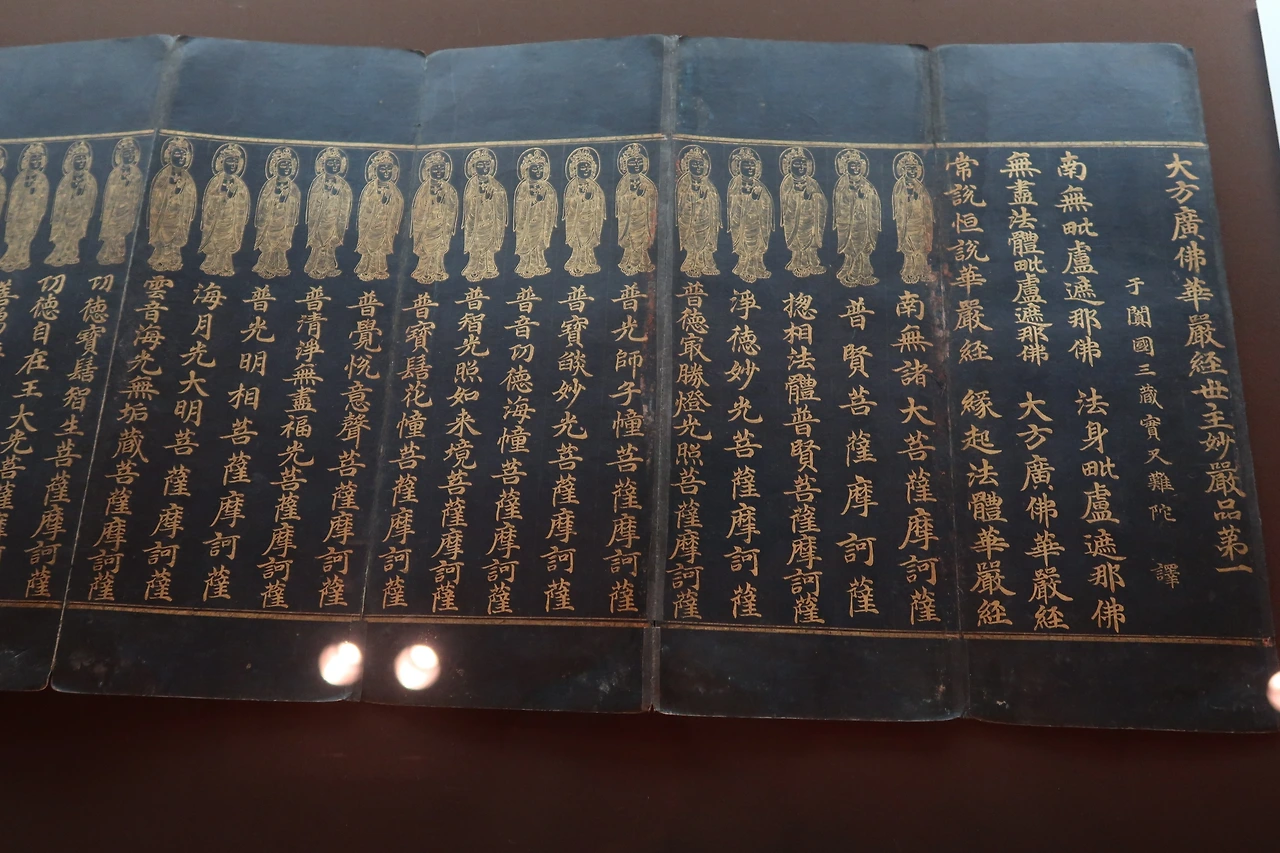 大方廣佛華嚴經世主妙嚴品第一
于闐國三藏實叉難陀 譯
南無毗盧遮那佛 法身毗盧遮那佛
無盡法體毗盧遮那佛 大方廣佛華嚴經
常說恒說華嚴經 緣起法體華嚴經
南無諸大菩薩摩訶薩
普賢菩薩摩訶薩
揔相法體普賢菩薩摩訶薩
淨德妙光菩薩摩訶薩
普德㝡勝燈光照菩薩摩訶薩
普光師子幢菩薩摩訶薩
普寶燄妙光菩薩摩訶薩
普音功德海幢菩薩摩訶薩
普智光照如来境菩薩摩訶薩
普寶髻花幢菩薩摩訶薩
普覺恱意聲菩薩摩訶薩
普清淨無盡福光菩薩摩訶薩
普光明相菩薩摩訶薩
海月光大明菩薩摩訶薩
雲音海光無垢藏菩薩摩訶薩
功德寶髻智生菩薩摩訶薩
功德自在王大光菩薩摩訶薩